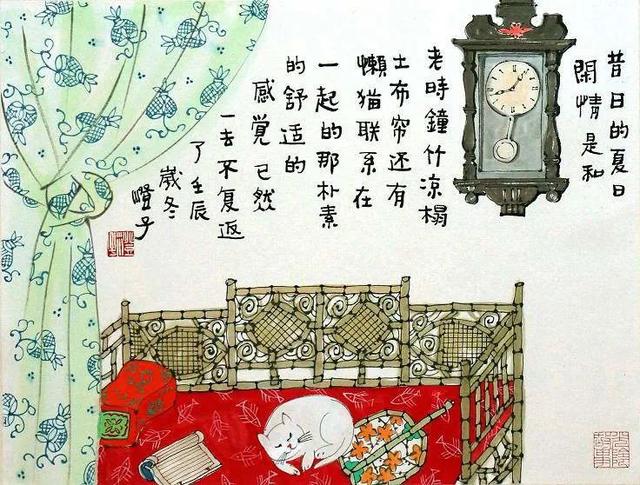 昔日的夏日
閑情是和
老時鐘竹凉榻
土布帘还有
懒猫联系在
一起的那朴素
的舒适的
感覺已然
一去不复返
了壬辰
嵗冬
橙子